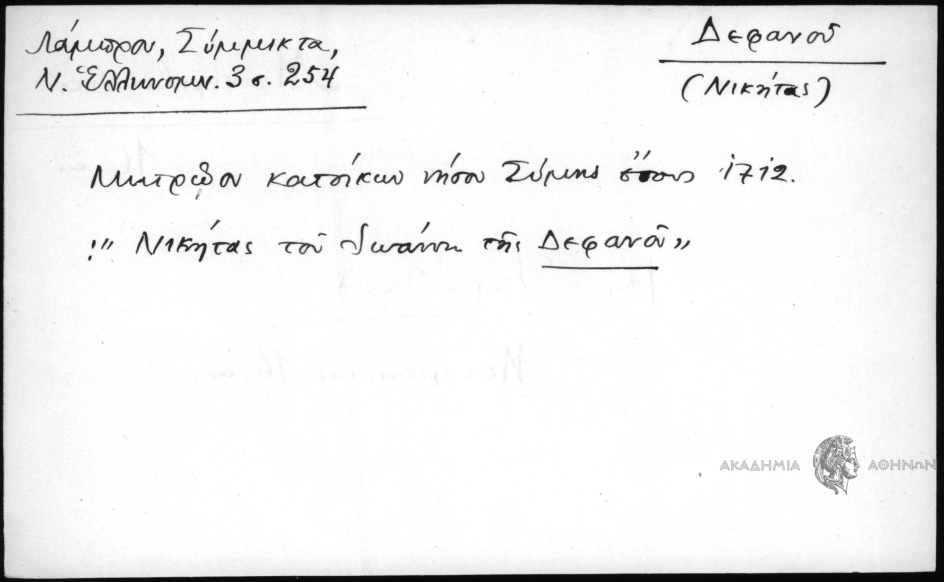 Λάμπρου, Σύμμεικτα,
Ν. Ἑλληνομν. 3 σ. 254
Δεφανοῦ
(Νικήτας)
Μητρῷον κατοίκων νήσου Σύμης ἔτους 1712.
:" Νικήτας τοῦ Ἰωάννη τῆς Δεφανοῦ"
ΑΚΑΔΗΜΙΑ ΑΘΗΝΩΝ